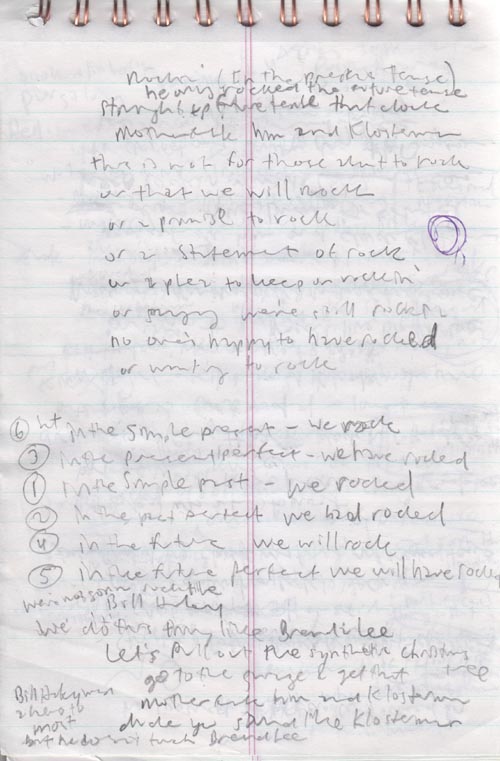 Rockin' (In the Present Tense)
he always rocked the future tense
straight up future tense that dude
Motherfuck him and Klosterman
this is not for those about to rock
or that we will rock
or a promise to rock
or a statement of rock
or a plea to keep on rockin'
or saying we're still rockin
no one's happy to have rocked
or wanting to rock
⑥ in the simple present - we rock
③ in the present perfect - we have rocked
① in the simple past - we rocked
② in the past perfect we had rocked
④ in the future we will rock
⑤ in the future perfect we will have rocked
we're not gonna rock like
Bill Haley
we do this thing like Brenda Lee
Let's pull out the synthetic christmas
tree
go to the garage & get that
Motherfuck him and Klosterman
dude you sound like Klosterman
Bill Haley was
a hero to
most
but he doesn't touch Brenda Lee